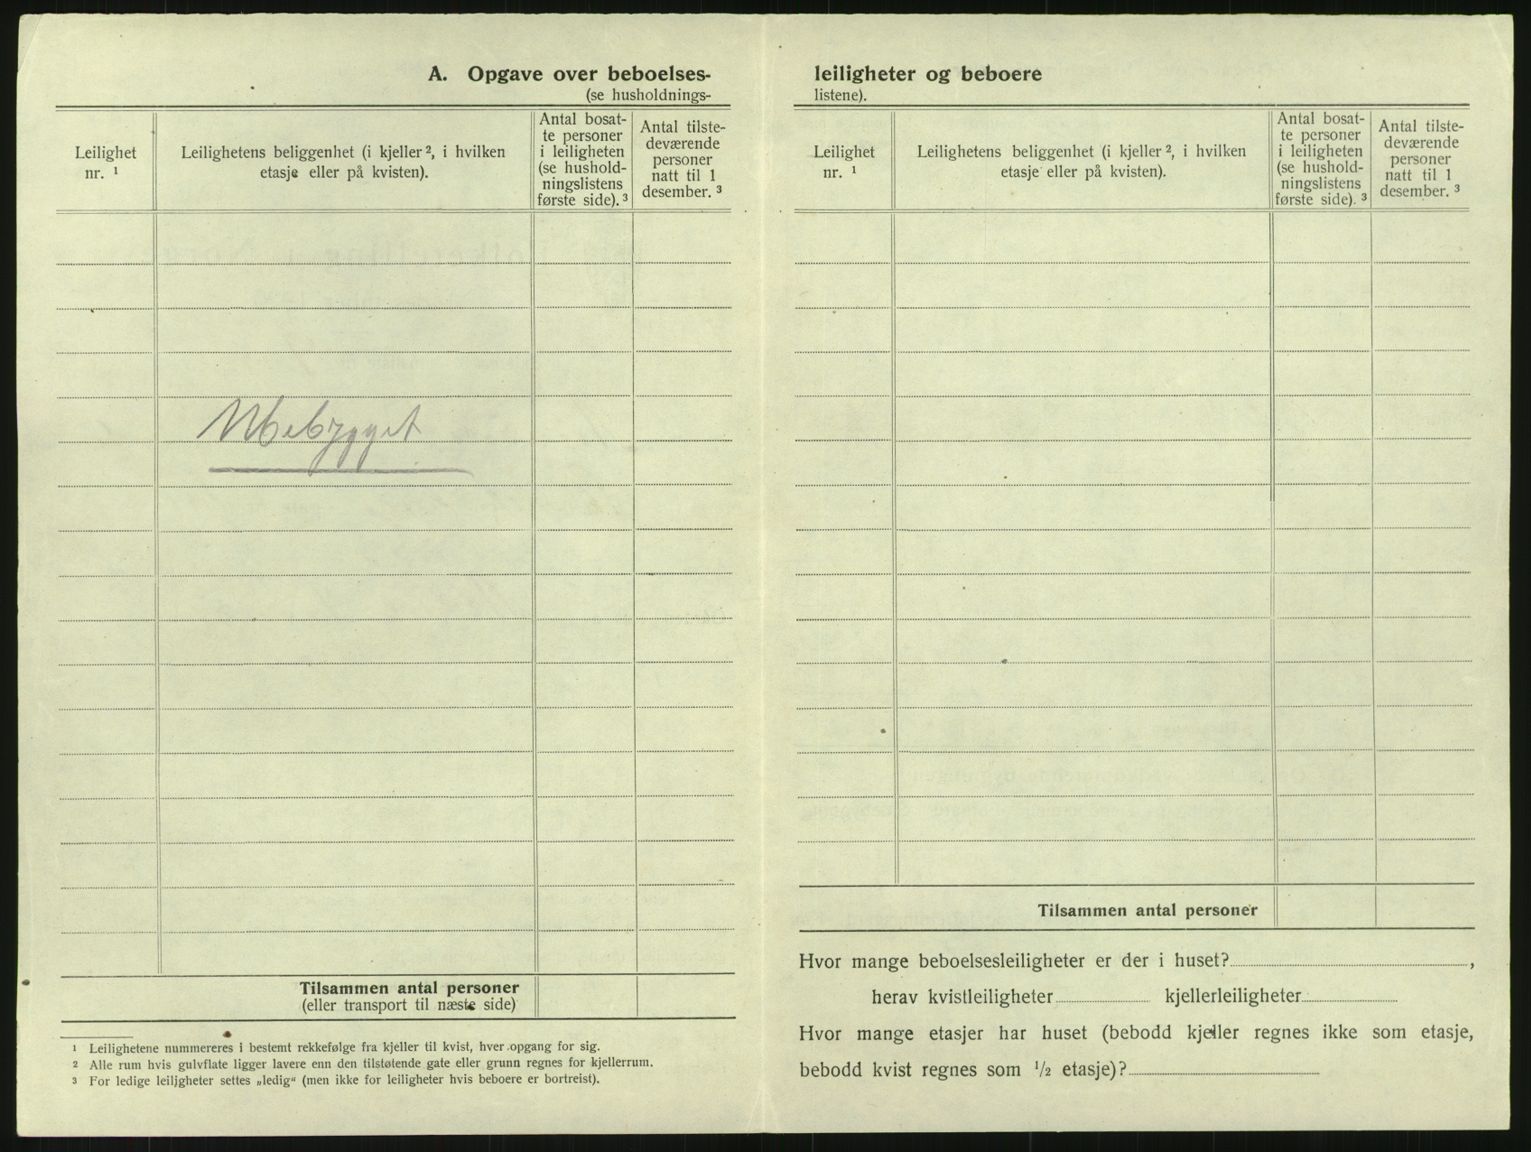 A. Opgave over beboelses-
(se husholdnings-
Leilighet
nr. ¹
Leilighetens beliggenhet (i kjeller ², i hvilken
etasje eller på kvisten).
Antal bosat-
te personer
i leiligheten
(se hushold-
ningslistens
første side). ³
Antal tilste-
deværende
personer
natt til 1
desember. ³
Ubebygget
Tilsammen antal personer
(eller transport til næste side)
¹ Leilighetene nummereres i bestemt rekkefølge fra kjeller til kvist, hver opgang for sig.
² Alle rum hvis gulvflate ligger lavere enn den tilstøtende gate eller grunn regnes for kjellerrum.
³ For ledige leiligheter settes „ledig“ (men ikke for leiligheter hvis beboere er bortreist).
leiligheter og beboere
listene).
Leilighet
nr. ¹
Leilighetens beliggenhet (i kjeller ², i hvilken
etasje eller på kvisten).
Antal bosat-
te personer
i leiligheten
(se hushold-
ningslistens
første side). ³
Antal tilste-
deværende
personer
natt til 1
desember. ³
Tilsammen antal personer
Hvor mange beboelsesleiligheter er der i huset? ,
herav kvistleiligheter kjellerleiligheter
Hvor mange etasjer har huset (bebodd kjeller regnes ikke som etasje,
bebodd kvist regnes som ½ etasje)?